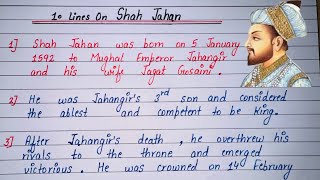 10 Lines On Shah Jahan
1] Shah Jahan was born on 5 January
1592 to Mughal Emperor Jahangir
and his wife Jagat Gosaini.
2] He was Jahangir's 3rd son and considered
the ablest and competent to be King.
3] After Jahangir's death, he overthrew his
rivals to the throne and emerged
victorious. He was crowned on 14 February